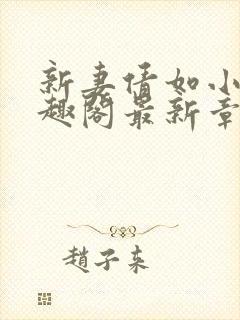 新妻情如小
趣阁最新章
趙子来